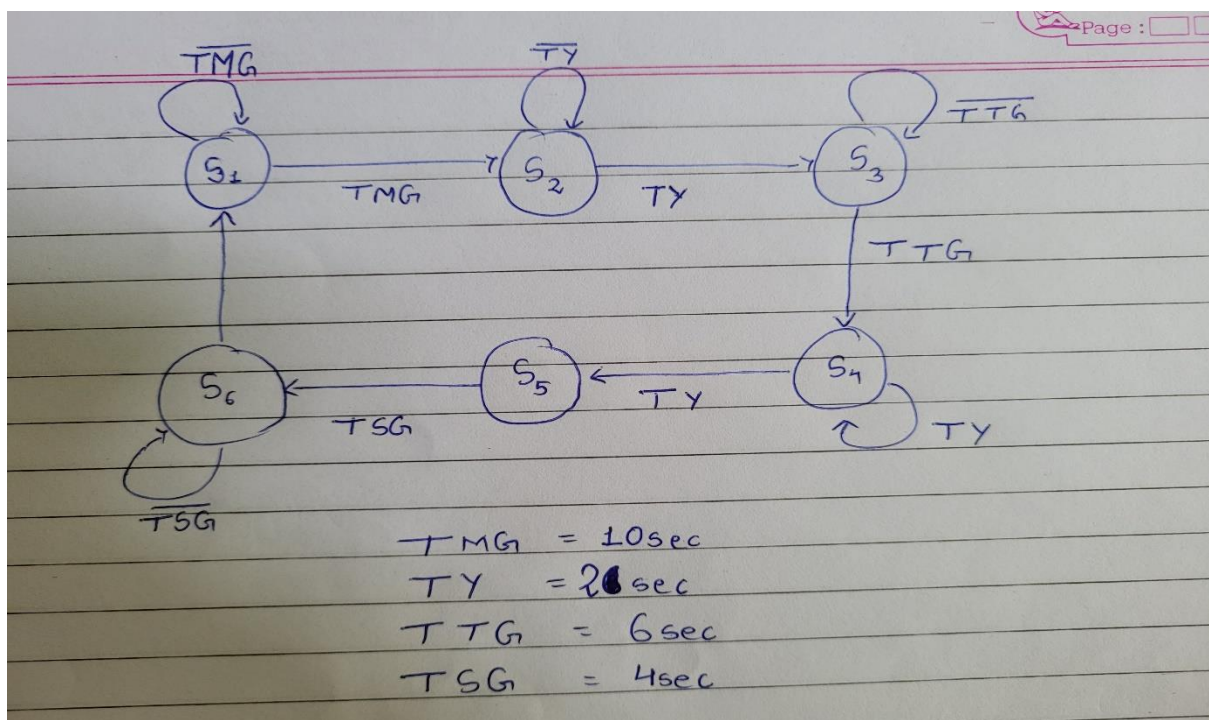 Page :
T̅M̅G̅ T̅Y̅ T̅T̅G̅
S1 TMG S2 TY S3
TTG
S6 TSG S5 TY S4
TY
T̅S̅G̅
TMG = 10sec
TY = 2 sec
TTG = 6sec
TSG = 4sec